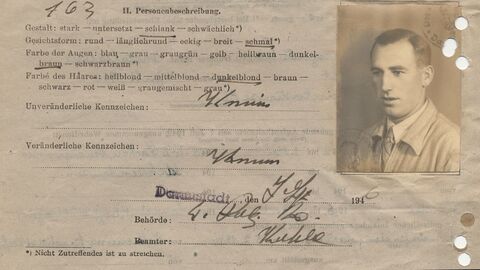 163
II. Personenbeschreibung.
Gestalt: stark — untersetzt — schlank — schwächlich*)
Gesichtsform: rund — länglichrund — eckig — breit — schmal*)
Farbe der Augen: blau — grau — graugrün — gelb — hellbraun — dunkel-
braun — schwarzbraun*)
Farbe des Haares: hellblond — mittelblond — dunkelblond — braun —
schwarz — rot — weiß — graugemischt — grau*)
Unveränderliche Kennzeichen:
Veränderliche Kennzeichen:
Darmstadt, den 194
Behörde:
Beamter:
*) Nicht Zutreffendes ist zu streichen.